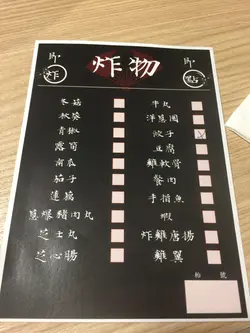 炸物
炸
點
冬菇
秋葵
青椒
露筍
南瓜
茄子
蓮藕
蔥爆豬肉丸
芝士丸
芝心腸
牛丸
洋蔥圈
餃子
豆腐
雞軟骨
蟹肉
手指魚
蝦
炸雞唐揚
雞翼
枱號